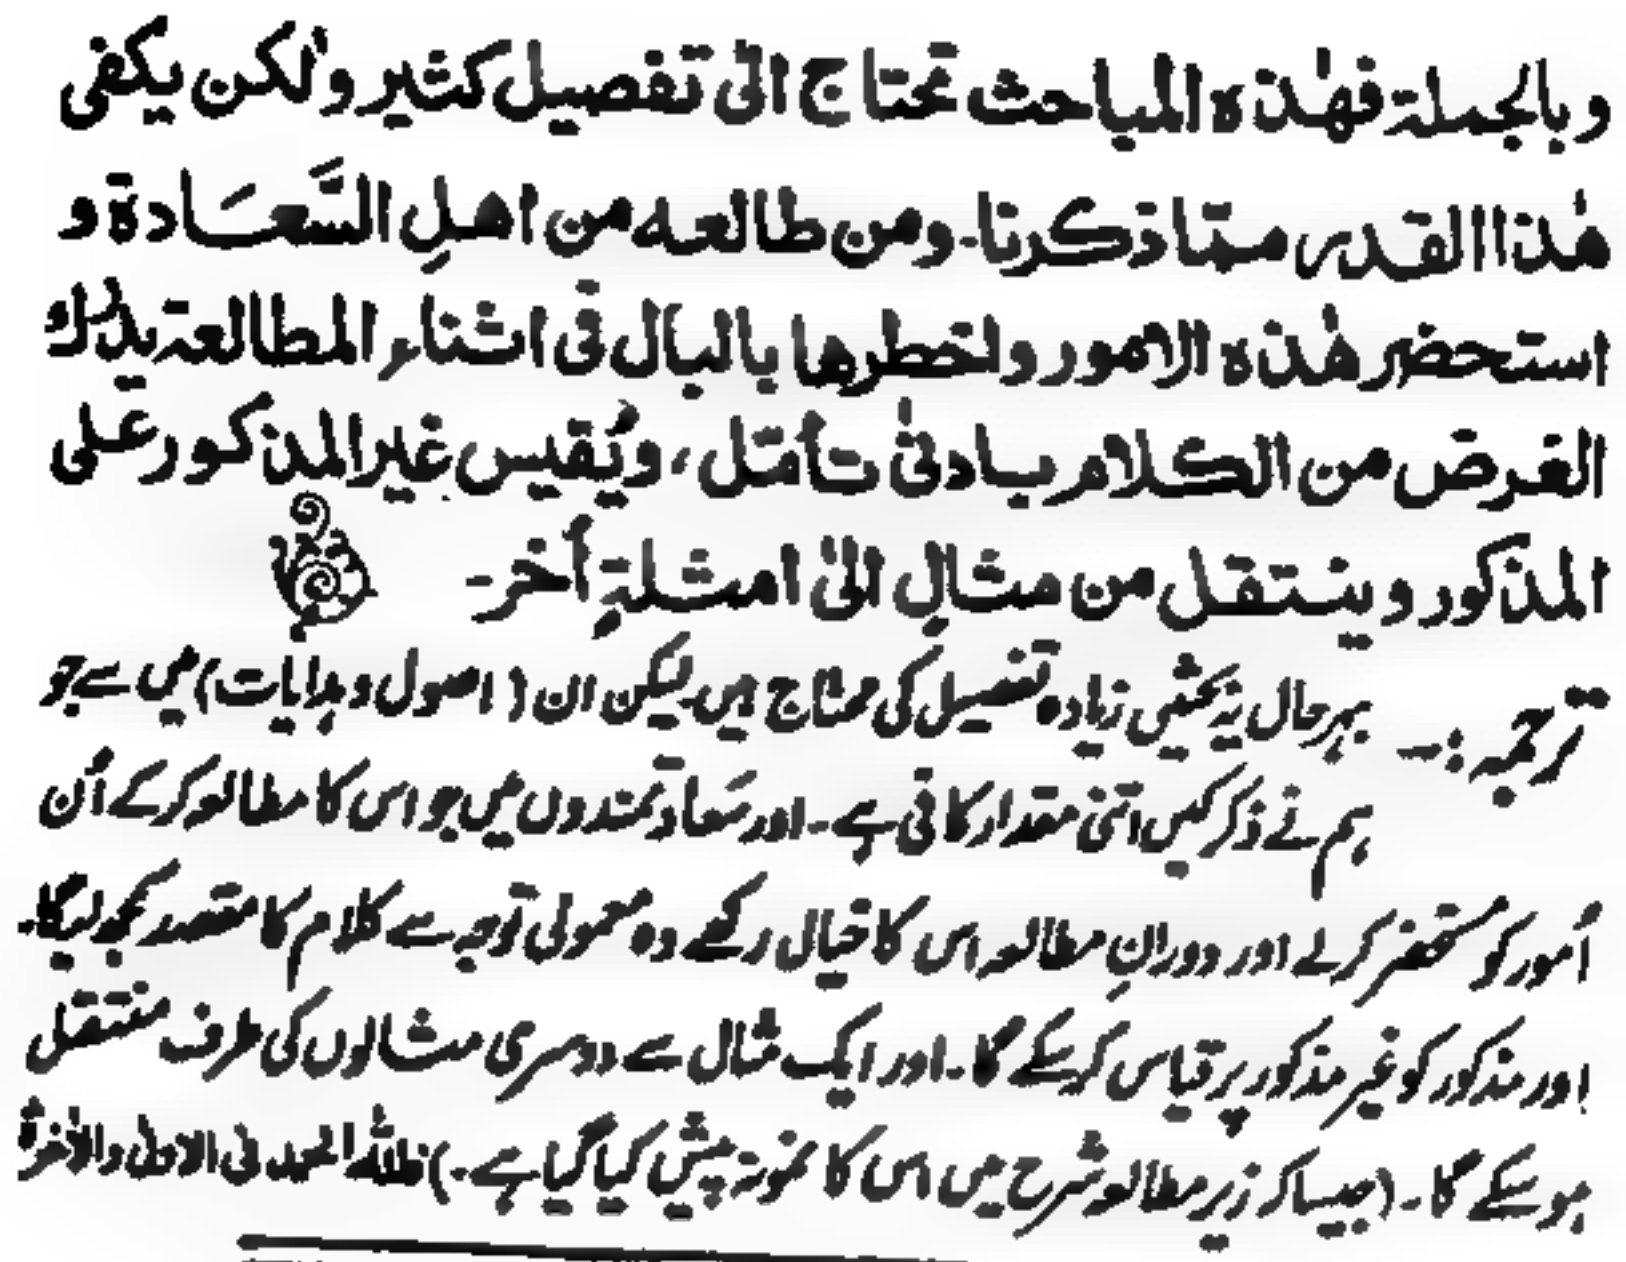 وبالجملة فهٰذه المباحث تحتاج الىٰ تفصيل كثير ولٰكن يكفى
هٰذا القدر ممّا ذكرنا۔ ومن طالعه من اهلِ السَّعَادة و
استحضر هٰذه الامور واخطرها بالبال فى اثناء المطالعة يدرك
الغرض من الكلام بادنىٰ تأمّل، ويُقيس غير المذكور على
المذكور وينتقل من مثالٍ الىٰ امثلةٍ أخر۔
ترجمہ:— بہرحال یہ بحثیں زیادہ تفصیل کی محتاج ہیں لیکن ان (اصول و ہدایات) میں سے جو
ہم نے ذکر کیں اتنی مقدار کافی ہے۔ اور سَعادتمندوں میں جو اس کا مطالعہ کرکے اُن
اُمور کو مستحضر کرلے اور دورانِ مطالعہ اس کا خیال رکھے وہ معمولی توجہ سے کلام کا مقصد سمجھ لیگا۔
اور مذکور کو غیر مذکور پر قیاس کرسکے گا۔ اور ایک مثال سے دوسری مثالوں کی طرف منتقل
ہوسکے گا۔ (جیساکہ زیر مطالعہ شرح میں اس کا نمونہ پیش کیا گیا ہے۔) فللّٰہ الحمد فی الاولیٰ والاٰخرۃ